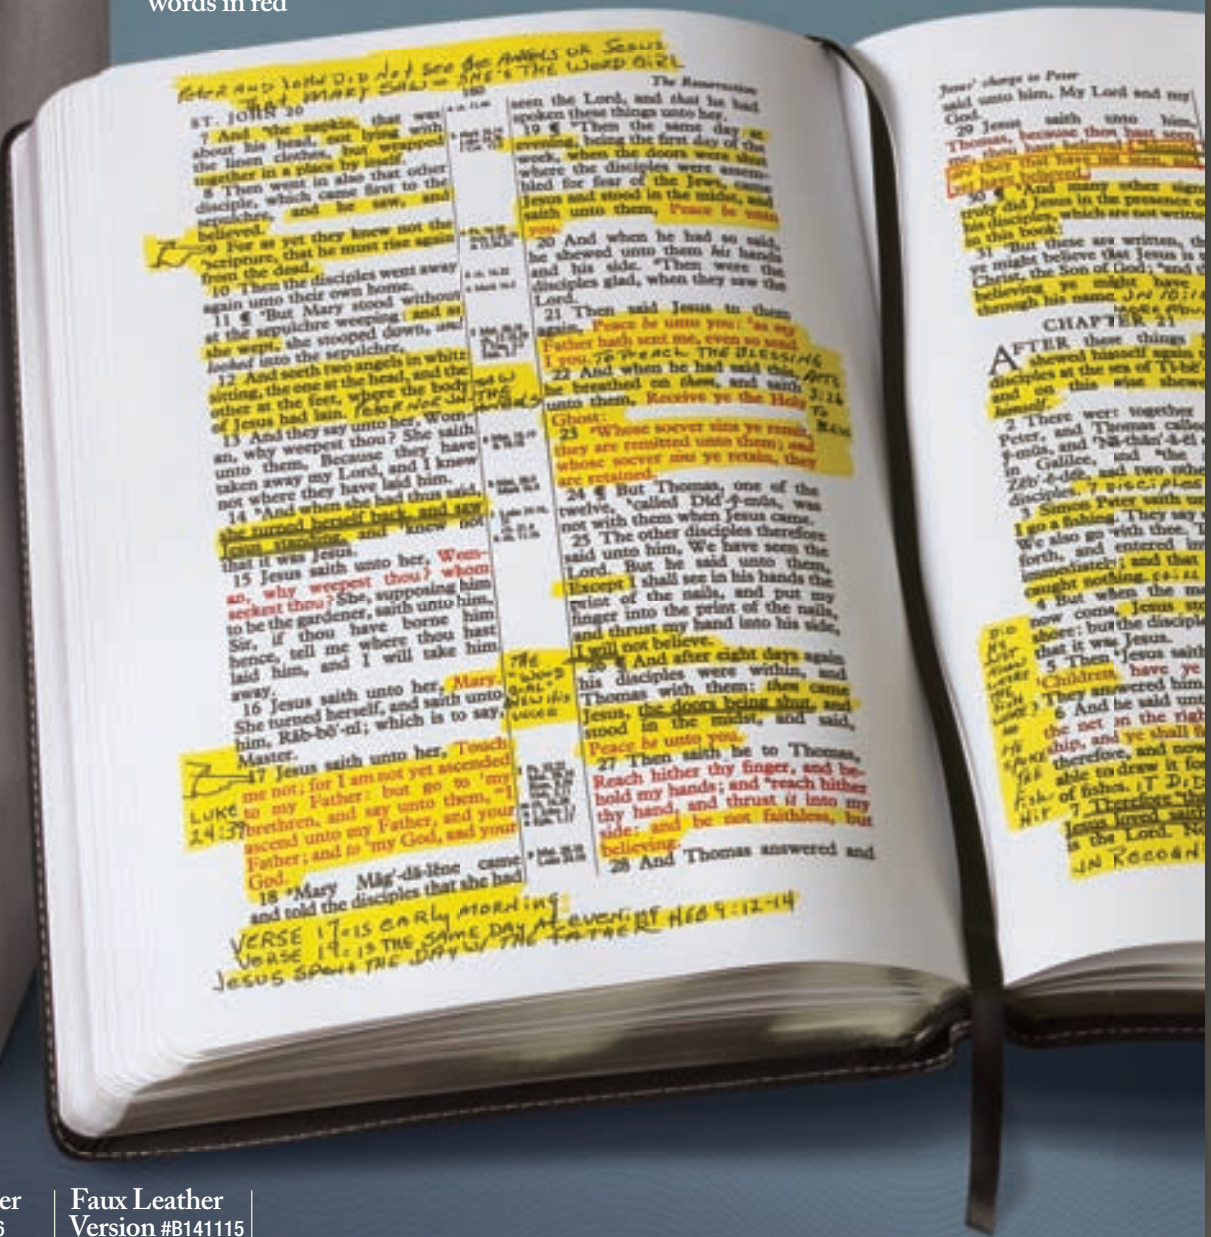 words in red
PETER AND JOHN DID NOT SEE the ANGELS OR JESUS
BUT MARY SAW = SHE'S THE WORD GIRL
ST. JOHN 20
The Resurrection
7 And the napkin, that was
about his head, not lying with
the linen clothes, but wrapped
together in a place by itself.
8 Then went in also that other
disciple, which came first to the
sepulchre, and he saw, and
believed.
9 For as yet they knew not the
scripture, that he must rise again
from the dead.
10 Then the disciples went away
again unto their own home.
11 ¶ But Mary stood without
at the sepulchre weeping: and as
she wept, she stooped down, and
looked into the sepulchre,
12 And seeth two angels in white
sitting, the one at the head, and the
other at the feet, where the body
of Jesus had lain.
13 And they say unto her, Wom-
an, why weepest thou? She saith
unto them, Because they have
taken away my Lord, and I know
not where they have laid him.
14 And when she had thus said,
she turned herself back, and saw
Jesus standing, and knew not
that it was Jesus.
15 Jesus saith unto her, Wom-
an, why weepest thou? whom
seekest thou? She, supposing him
to be the gardener, saith unto him,
Sir, if thou have borne him
hence, tell me where thou hast
laid him, and I will take him
away.
16 Jesus saith unto her, Mary.
She turned herself, and saith unto
him, Răb-bō'-nī; which is to say,
Master.
17 Jesus saith unto her, Touch
me not; for I am not yet ascended
to my Father: but go to my
brethren, and say unto them, I
ascend unto my Father, and your
Father; and to my God, and your
God.
18 Mary Măg'-dă-lēne came
and told the disciples that she had
LUKE
24:39
THE
WORD
VERSE 17 = IS EARLY MORNING:
VERSE 19 = IS THE SAME DAY AT EVENING HEB 9:12-14
JESUS SPENT THE DAY W/ THE FATHER
seen the Lord, and that he had
spoken these things unto her.
19 ¶ Then the same day at
evening, being the first day of the
week, when the doors were shut
where the disciples were assem-
bled for fear of the Jews, came
Jesus and stood in the midst, and
saith unto them, Peace be unto
you.
20 And when he had so said,
he shewed unto them his hands
and his side. Then were the
disciples glad, when they saw the
Lord.
21 Then said Jesus to them
again, Peace be unto you: as my
Father hath sent me, even so send
I you. TO PREACH THE BLESSING
22 And when he had said this, ACTS
he breathed on them, and saith 3:26
unto them, Receive ye the Holy
Ghost:
23 Whose soever sins ye remit,
they are remitted unto them; and
whose soever sins ye retain, they
are retained.
24 ¶ But Thomas, one of the
twelve, called Did'-y-mŭs, was
not with them when Jesus came.
25 The other disciples therefore
said unto him, We have seen the
Lord. But he said unto them,
Except I shall see in his hands the
print of the nails, and put my
finger into the print of the nails,
and thrust my hand into his side,
I will not believe.
26 ¶ And after eight days again
his disciples were within, and
Thomas with them: then came
Jesus, the doors being shut, and
stood in the midst, and said,
Peace be unto you.
27 Then saith he to Thomas,
Reach hither thy finger, and be-
hold my hands; and reach hither
thy hand, and thrust it into my
side: and be not faithless, but
believing.
28 And Thomas answered and
Jesus' charge to Peter
said unto him, My Lord and my
God.
29 Jesus saith unto him,
Thomas, because thou hast seen
me, thou hast believed:
are they that have not seen, and
yet have believed.
30 ¶ And many other signs
truly did Jesus in the presence of
his disciples, which are not written
in this book:
31 But these are written,
ye might believe that Jesus is
Christ, the Son of God; and
believing ye might have
through his name. JN 10:10
CHAPTER 21
AFTER these things
shewed himself again
disciples at the sea of Tī-bē
and on this wise shewed
himself.
2 There were together
Peter, and Thomas called
y-mŭs, and Nă-thăn'-ă-ĕl
in Galilee, and the
Zĕb'-ĕ-dēe, and two other
disciples.
3 Simon Peter saith un
I go a fishing. They say
We also go with thee. T
forth, and entered int
immediately; and that
caught nothing.
4 But when the mo
now come, Jesus sto
shore: but the disciple
that it was Jesus.
5 Then Jesus saith
Children, have ye
They answered him
6 And he said unt
the net on the righ
ship, and ye shall fi
therefore, and now
able to draw it for
of fishes. IT DID
7 Therefore
Jesus loved saith
is the Lord. No
er
6
Faux Leather
Version #B141115